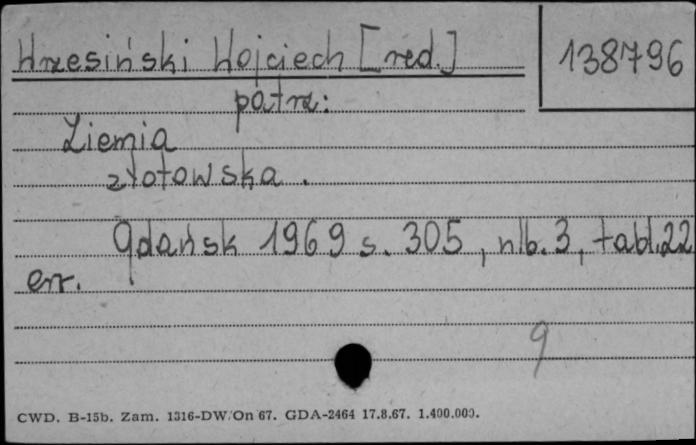 Wrzesiński Wojciech [red.]
138796
patrz:
Ziemia
złotowska.
Gdańsk 1969 s. 305, nlb. 3, tabl. 22
err.
9
CWD. B-15b. Zam. 1316-DW/On 67. GDA-2464 17.8.67. 1.400.000.